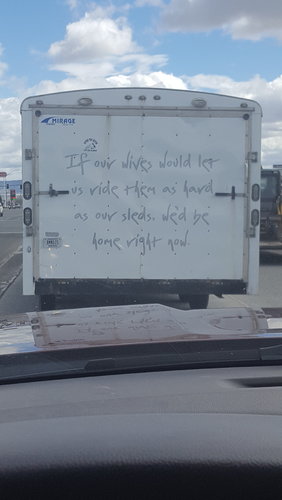 MIRAGE
If our wives would let
us ride them as hard
as our sleds, we'd be
home right now